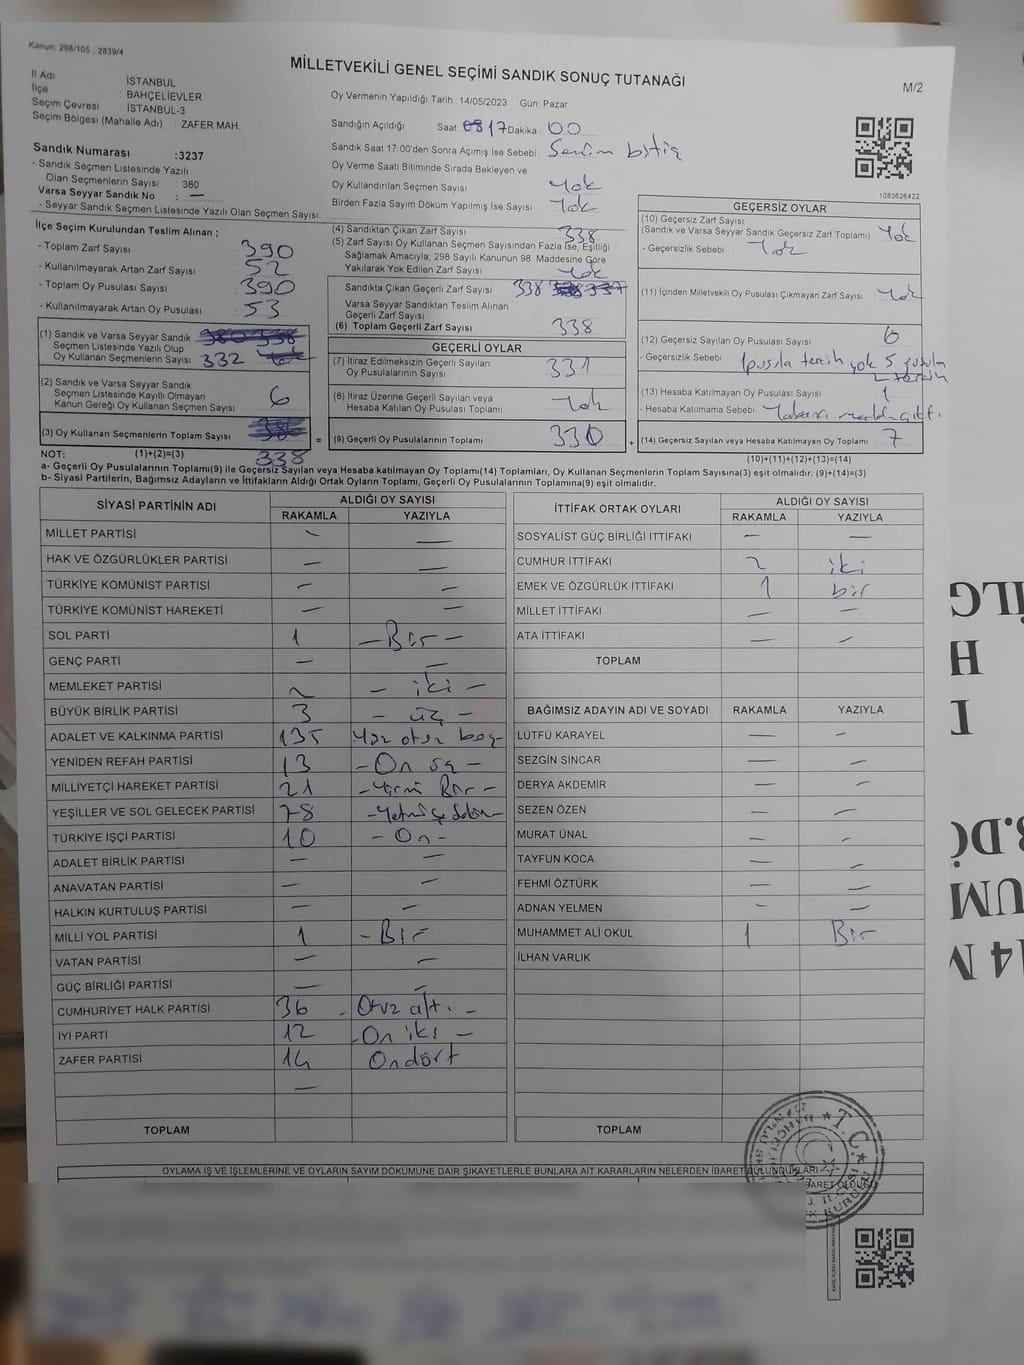 Kanun: 298/105 . 2839/4
MİLLETVEKİLİ GENEL SEÇİMİ SANDIK SONUÇ TUTANAĞI
M/2
İl Adı : İSTANBUL
İlçe : BAHÇELİEVLER
Seçim Çevresi : İSTANBUL-3
Seçim Bölgesi (Mahalle Adı) : ZAFER MAH.
Sandık Numarası :3237
- Sandık Seçmen Listesinde Yazılı
Olan Seçmenlerin Sayısı : 380
Varsa Seyyar Sandık No : —
- Seyyar Sandık Seçmen Listesinde Yazılı Olan Seçmen Sayısı
Oy Vermenin Yapıldığı Tarih :14/05/2023 Gün: Pazar
Sandığın Açıldığı Saat: 17 Dakika : 00
Sandık Saat 17:00'den Sonra Açımış İse Sebebi
Oy Verme Saati Bitiminde Sırada Bekleyen ve
Oy Kullandırılan Seçmen Sayısı Yok
Birden Fazla Sayım Döküm Yapılmış İse Sayısı Yok
1083626422
İlçe Seçim Kurulundan Teslim Alınan ;
- Toplam Zarf Sayısı : 390
- Kullanılmayarak Artan Zarf Sayısı : 52
- Toplam Oy Pusulası Sayısı : 390
- Kullanılmayarak Artan Oy Pusulası : 53
(1) Sandık ve Varsa Seyyar Sandık
Seçmen Listesinde Yazılı Olup
Oy Kullanan Seçmenlerin Sayısı 332
(2) Sandık ve Varsa Seyyar Sandık
Seçmen Listesinde Kayıtlı Olmayan
Kanun Gereği Oy Kullanan Seçmen Sayısı 6
(3) Oy Kullanan Seçmenlerin Toplam Sayısı
(1)+(2)=(3) 338
(4) Sandıktan Çıkan Zarf Sayısı 338
(5) Zarf Sayısı Oy Kullanan Seçmen Sayısından Fazla İse, Eşitliği
Sağlamak Amacıyla; 298 Sayılı Kanunun 98. Maddesine Göre
Yakılarak Yok Edilen Zarf Sayısı Yok
Sandıkta Çıkan Geçerli Zarf Sayısı 338
Varsa Seyyar Sandıktan Teslim Alınan
Geçerli Zarf Sayısı
(6) Toplam Geçerli Zarf Sayısı 338
GEÇERLİ OYLAR
(7) İtiraz Edilmeksizin Geçerli Sayılan
Oy Pusulalarının Sayısı 331
(8) İtiraz Üzerine Geçerli Sayılan veya
Hesaba Katılan Oy Pusulası Toplamı Yok
= (9) Geçerli Oy Pusulalarının Toplamı 330 +
GEÇERSİZ OYLAR
(10) Geçersiz Zarf Sayısı
(Sandık ve Varsa Seyyar Sandık Geçersiz Zarf Toplamı) Yok
- Geçersizlik Sebebi : Yok
(11) İçinden Milletvekili Oy Pusulası Çıkmayan Zarf Sayısı Yok
(12) Geçersiz Sayılan Oy Pusulası Sayısı 6
- Geçersizlik Sebebi : 1 pusula tercih yok 5 pusula
2 tercih
(13) Hesaba Katılmayan Oy Pusulası Sayısı 1
- Hesaba Katılmama Sebebi
(14) Geçersiz Sayılan veya Hesaba Katılmayan Oy Toplamı 7
(10)+(11)+(12)+(13)=(14)
NOT:
a- Geçerli Oy Pusulalarının Toplamı(9) ile Geçersiz Sayılan veya Hesaba katılmayan Oy Toplamı(14) Toplamları, Oy Kullanan Seçmenlerin Toplam Sayısına(3) eşit olmalıdır. (9)+(14)=(3)
b- Siyasi Partilerin, Bağımsız Adayların ve İttifakların Aldığı Oyların Toplamı, Geçerli Oy Pusulalarının Toplamına(9) eşit olmalıdır.
SİYASİ PARTİNİN ADI ALDIĞI OY SAYISI
RAKAMLA YAZIYLA
MİLLET PARTİSİ — —
HAK VE ÖZGÜRLÜKLER PARTİSİ — —
TÜRKİYE KOMÜNİST PARTİSİ — —
TÜRKİYE KOMÜNİST HAREKETİ — —
SOL PARTİ 1 - Bir -
GENÇ PARTİ — —
MEMLEKET PARTİSİ 2 - iki -
BÜYÜK BİRLİK PARTİSİ 3 - üç -
ADALET VE KALKINMA PARTİSİ 135 Yüz otuz beş
YENİDEN REFAH PARTİSİ 13 - On üç -
MİLLİYETÇİ HAREKET PARTİSİ 21 - Yirmi Bir -
YEŞİLLER VE SOL GELECEK PARTİSİ 78 - Yetmiş Sekiz -
TÜRKİYE İŞÇİ PARTİSİ 10 - On -
ADALET BİRLİK PARTİSİ — —
ANAVATAN PARTİSİ — —
HALKIN KURTULUŞ PARTİSİ — —
MİLLİ YOL PARTİSİ 1 - Bir
VATAN PARTİSİ — —
GÜÇ BİRLİĞİ PARTİSİ — —
CUMHURİYET HALK PARTİSİ 36 - Otuz altı -
İYİ PARTİ 12 - On iki -
ZAFER PARTİSİ 14 Ondört
—
TOPLAM
İTTİFAK ORTAK OYLARI ALDIĞI OY SAYISI
RAKAMLA YAZIYLA
SOSYALİST GÜÇ BİRLİĞİ İTTİFAKI — —
CUMHUR İTTİFAKI 2 iki
EMEK VE ÖZGÜRLÜK İTTİFAKI 1 bir
MİLLET İTTİFAKI — —
ATA İTTİFAKI — —
TOPLAM
BAĞIMSIZ ADAYIN ADI VE SOYADI RAKAMLA YAZIYLA
LÜTFÜ KARAYEL — —
SEZGİN SİNCAR — —
DERYA AKDEMİR — —
SEZEN ÖZEN — —
MURAT ÜNAL — —
TAYFUN KOCA — —
FEHMİ ÖZTÜRK — —
ADNAN YELMEN — —
MUHAMMET ALİ OKUL 1 Bir
İLHAN VARLIK
TOPLAM
OYLAMA İŞ VE İŞLEMLERİNE VE OYLARIN SAYIM DÖKÜMÜNE DAİR ŞİKAYETLERLE BUNLARA AİT KARARLARIN NELERDEN İBARET BULUNDUKLARI
BARET OLDUĞU
T.C.